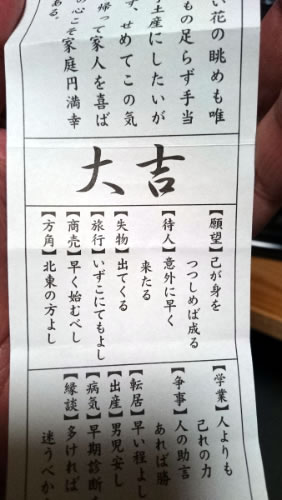 い花の眺めも唯
もの足らず手当
土産にしたいが
ず、せめてこの気
帰って家人を喜ば
の心こそ家庭円満幸
ある。
大吉
【願望】己が身を
つつしめば成る
【待人】意外に早く
来たる
【失物】出てくる
【旅行】いずこにてもよし
【商売】早く始むべし
【方角】北東の方よし
【学業】人よりも
己れの力
【争事】人の助言
あれば勝
【転居】早い程よし
【出産】男児安し
【病気】早期診断
【縁談】多ければ
迷うべか